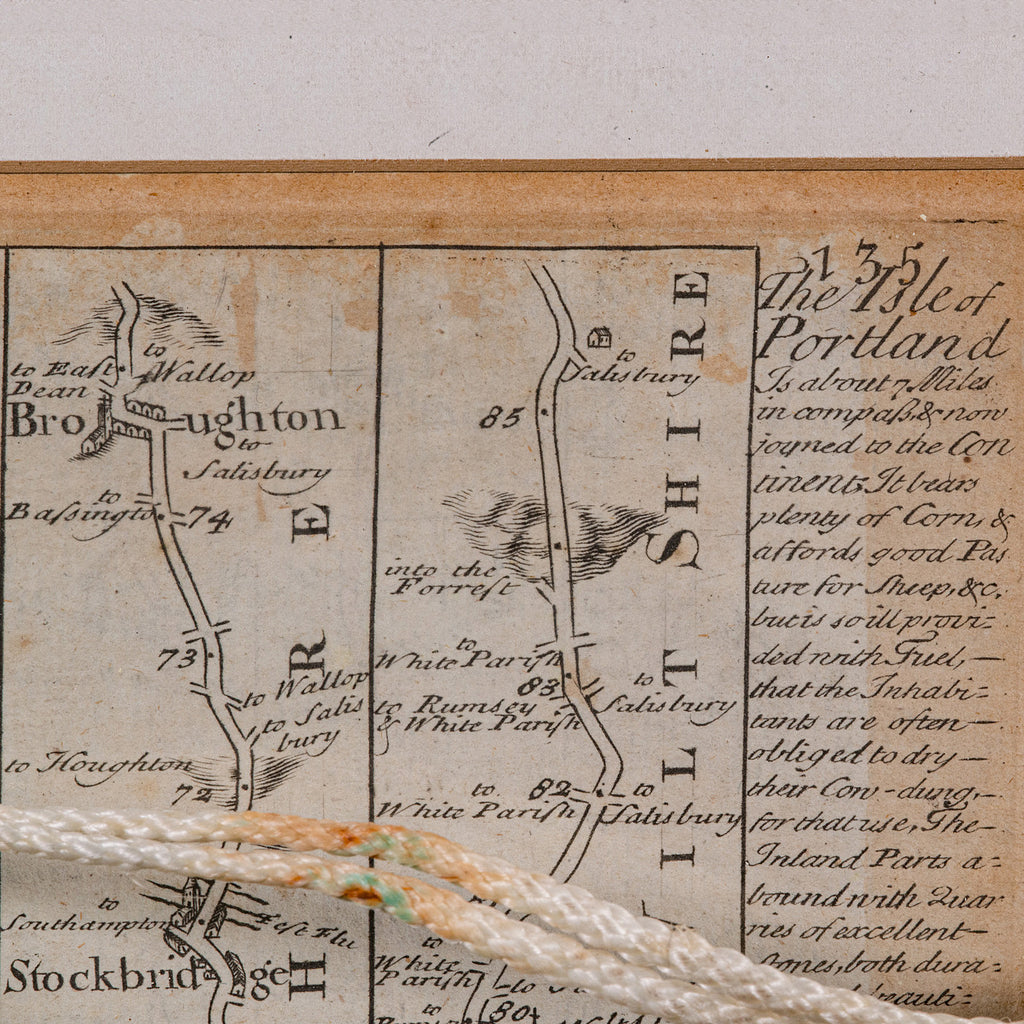 135
to East
Dean
to
Wallop
Broughton
to
Salisbury
to
Bassingto
74
73
to Wallop
to Salis
bury
to Houghton
72
to
Southampton
Test Flu
Stockbridge
H
R
E
to
Salisbury
85
into the
Forrest
to
White Parish
83
to
Salisbury
to Rumsey
& White Parish
82
to
White Parish
to
Salisbury
to
White
Parish
to
to
80
ILT SHIRE
The Isle of
Portland
Is about 7 Miles
in compass, & now
joyned to the Con
tinent; It bears
plenty of Corn, &
affords good Pas
ture for Sheep, &c,
but is so ill provi-
ded with Fuel, —
that the Inhabi-
tants are often —
obliged to dry —
their Cow-dung, —
for that use, The —
Inland Parts a-
bound with Quar
ries of excellent —
Stones, both dura-
beauti-